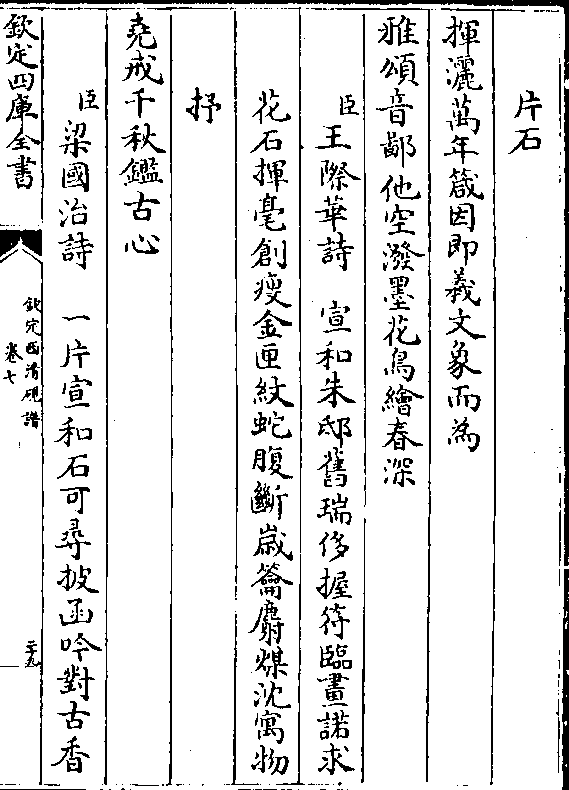 片石
揮灑萬年箴因即義文象而為
雅頌音鄙他空潑墨花鳥繪春深
臣王際華詩　宣和朱邸舊瑞侈握符臨畫諾求
花石揮毫創瘦金匣紋蛇腹斷歲籥麝煤沈寓物
抒
堯戒千秋鑑古心
臣梁國治詩　一片宣和石可尋披函吟對古香
欽定四庫全書
欽定西清硯譜
卷七
二十九